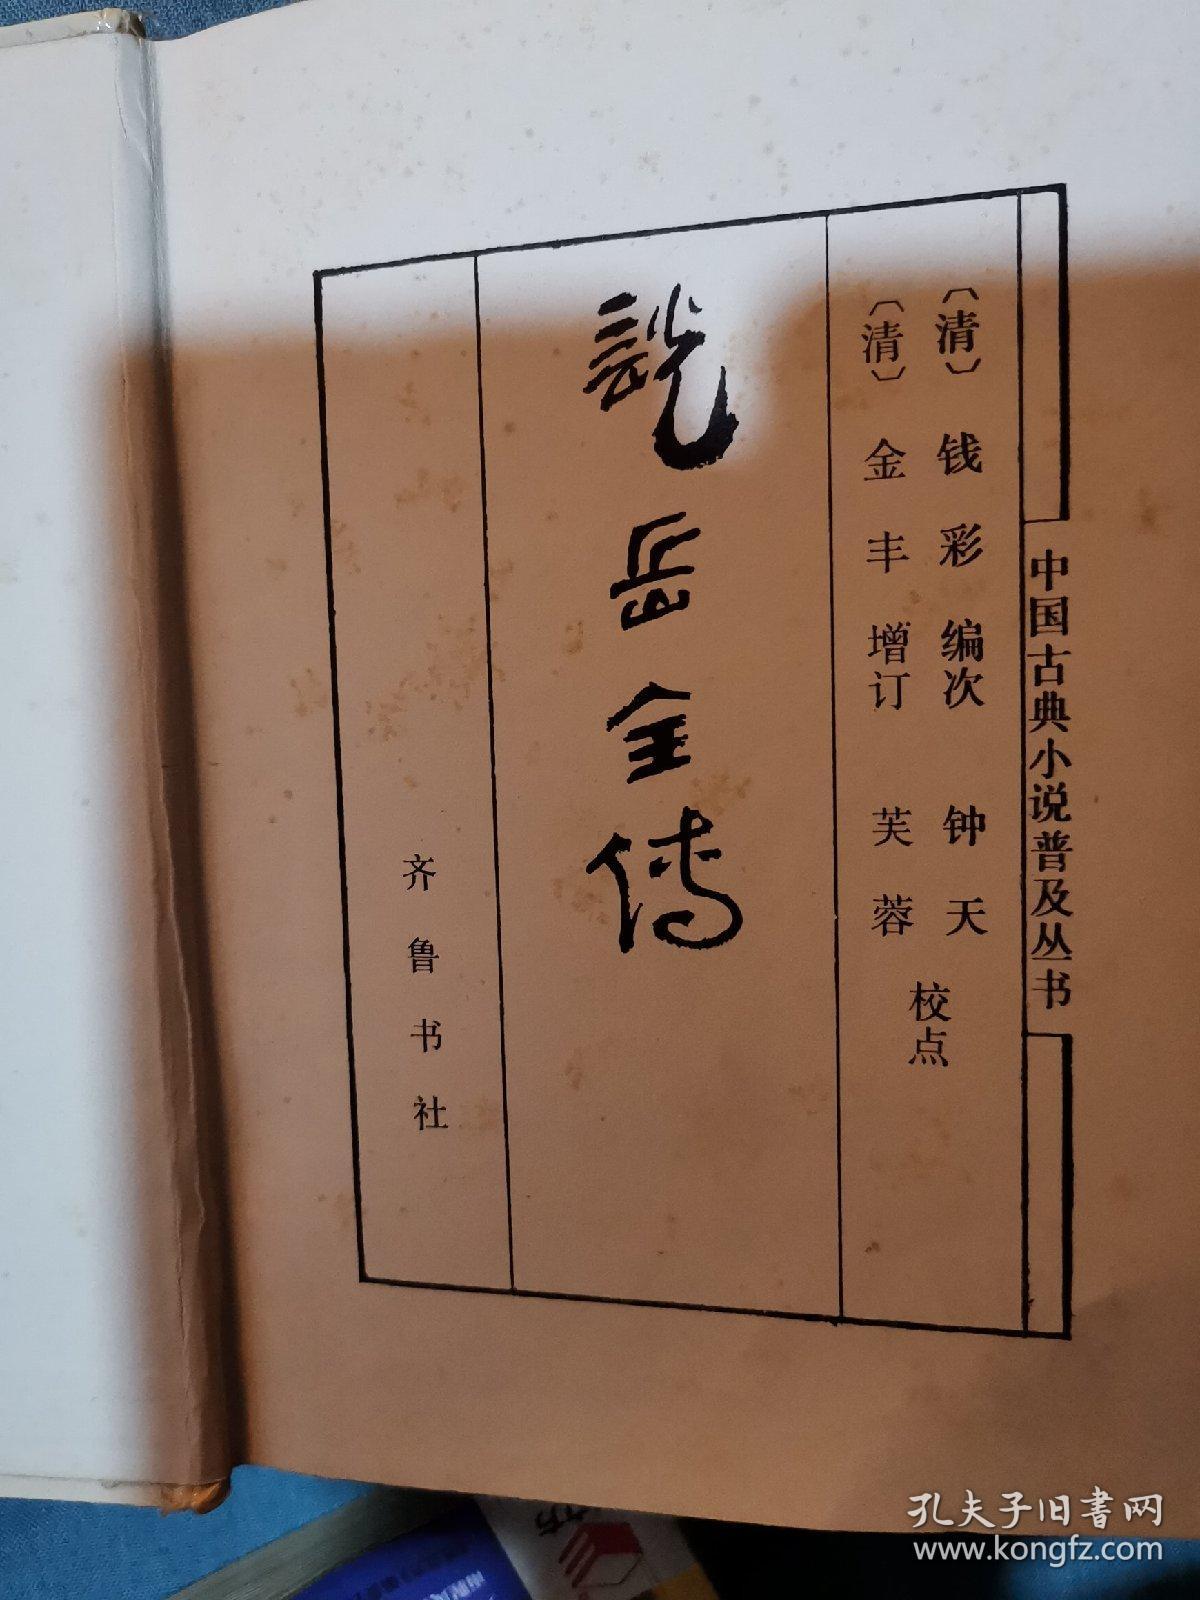 中国古典小说普及丛书
〔清〕钱彩编次 钟天
〔清〕金丰增订 芙蓉
校点
説岳全传
齐鲁书社
孔夫子旧书网
www.kongfz.com